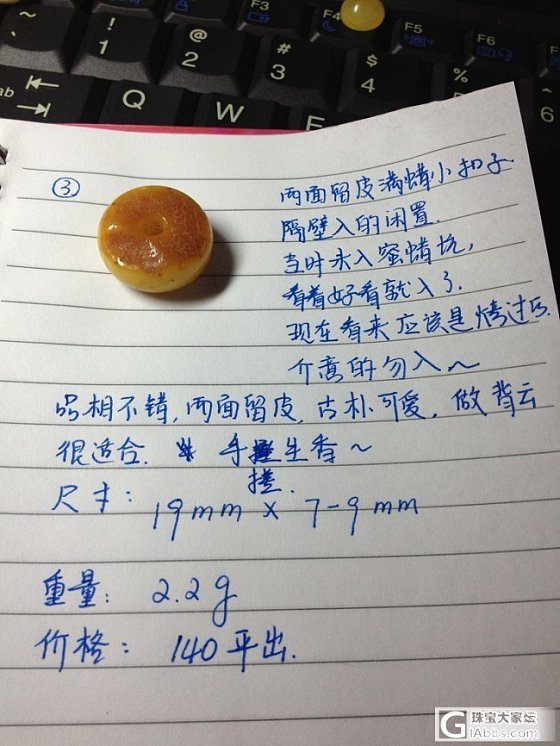 F2
F3
F4
F5
F6
! 1
@ 2
# 3
$ 4
%
6
ab
Q W E
③
两面留皮满蜡小扣子.
隔壁入的闲置.
当时未入蜜蜡坑,
看着好看就入了.
现在看来应该是烤过色
介意的勿入~
品相不错,两面留皮,古朴可爱,做背云
很适合. 手搓生香~
尺寸: 19mm x 7-9mm
重量: 2.2g
价格: 140平出.
G 珠宝大家坛
GIAbbs.com